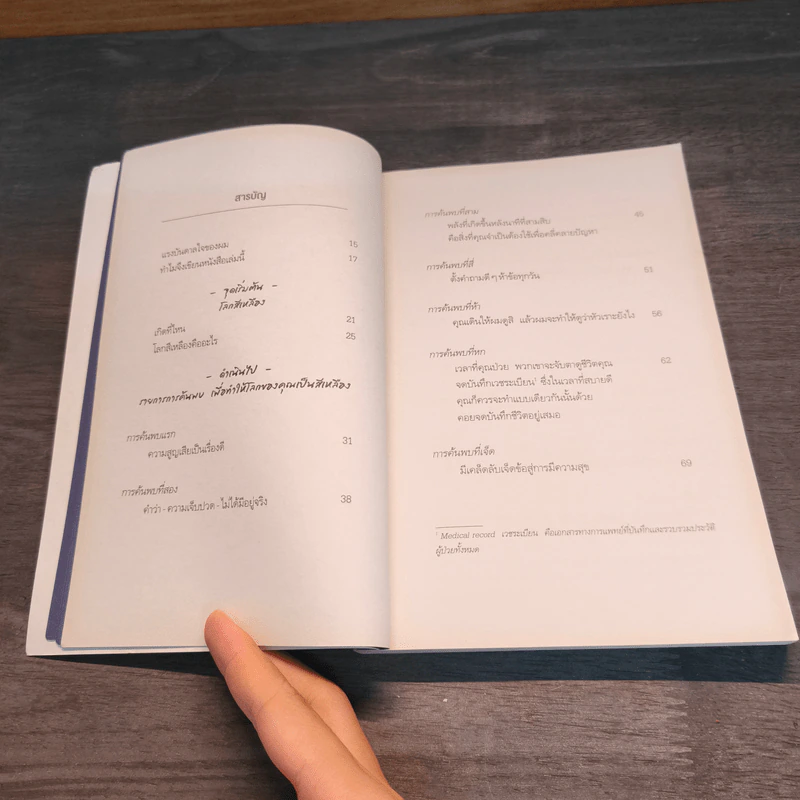 สารบัญ
แรงบันดาลใจของผม 15
ทำไมจึงเขียนหนังสือเล่มนี้ 17
- จุดเริ่มต้น -
โลกสีเหลือง
เกิดที่ไหน 21
โลกสีเหลืองคืออะไร 25
- ดำเนินไป -
รายการการค้นพบ เพื่อทำให้โลกของคุณเป็นสีเหลือง
การค้นพบแรก
ความสูญเสียเป็นเรื่องดี 31
การค้นพบที่สอง
คำว่า - ความเจ็บปวด - ไม่ได้มีอยู่จริง 38
การค้นพบที่สาม
พลังที่เกิดขึ้นหลังนาทีที่สามสิบ 45
คือสิ่งที่คุณจำเป็นต้องใช้เพื่อคลี่คลายปัญหา
การค้นพบที่สี่
ตั้งคำถามดี ๆ ห้าข้อทุกวัน 51
การค้นพบที่ห้า
คุณเดินให้ผมดูสิ แล้วผมจะทำให้ดูว่าหัวเราะยังไง 56
การค้นพบที่หก
เวลาที่คุณป่วย พวกเขาจะจับตาดูชีวิตคุณ 62
จดบันทึกเวชระเบียน¹ ซึ่งในเวลาที่สบายดี
คุณก็ควรจะทำแบบเดียวกันนั้นด้วย
คอยจดบันทึกชีวิตอยู่เสมอ
การค้นพบที่เจ็ด
มีเคล็ดลับเจ็ดข้อสู่การมีความสุข 69
¹ Medical record เวชระเบียน คือเอกสารทางการแพทย์ที่บันทึกและรวบรวมประวัติ
ผู้ป่วยทั้งหมด